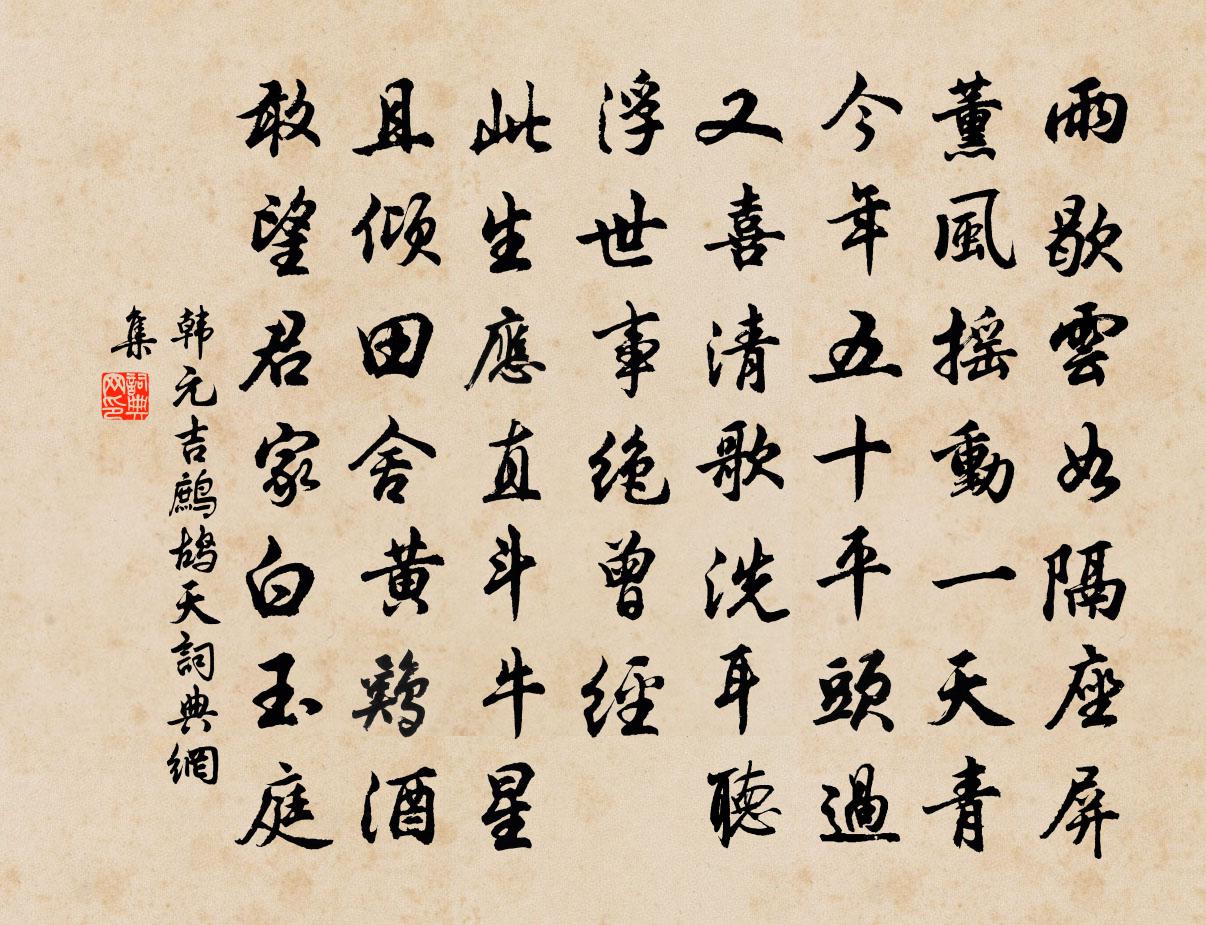 雨歇雲如隔座屏
薰風摇動一天青
今年五十平頭過
又喜清歌洗耳聽
浮世事絶曾經
此生應直斗牛星
且傾田舍黄鷄酒
敢望君家白玉庭
韩元吉鷓鴣天詞典網
集
詞典
网印